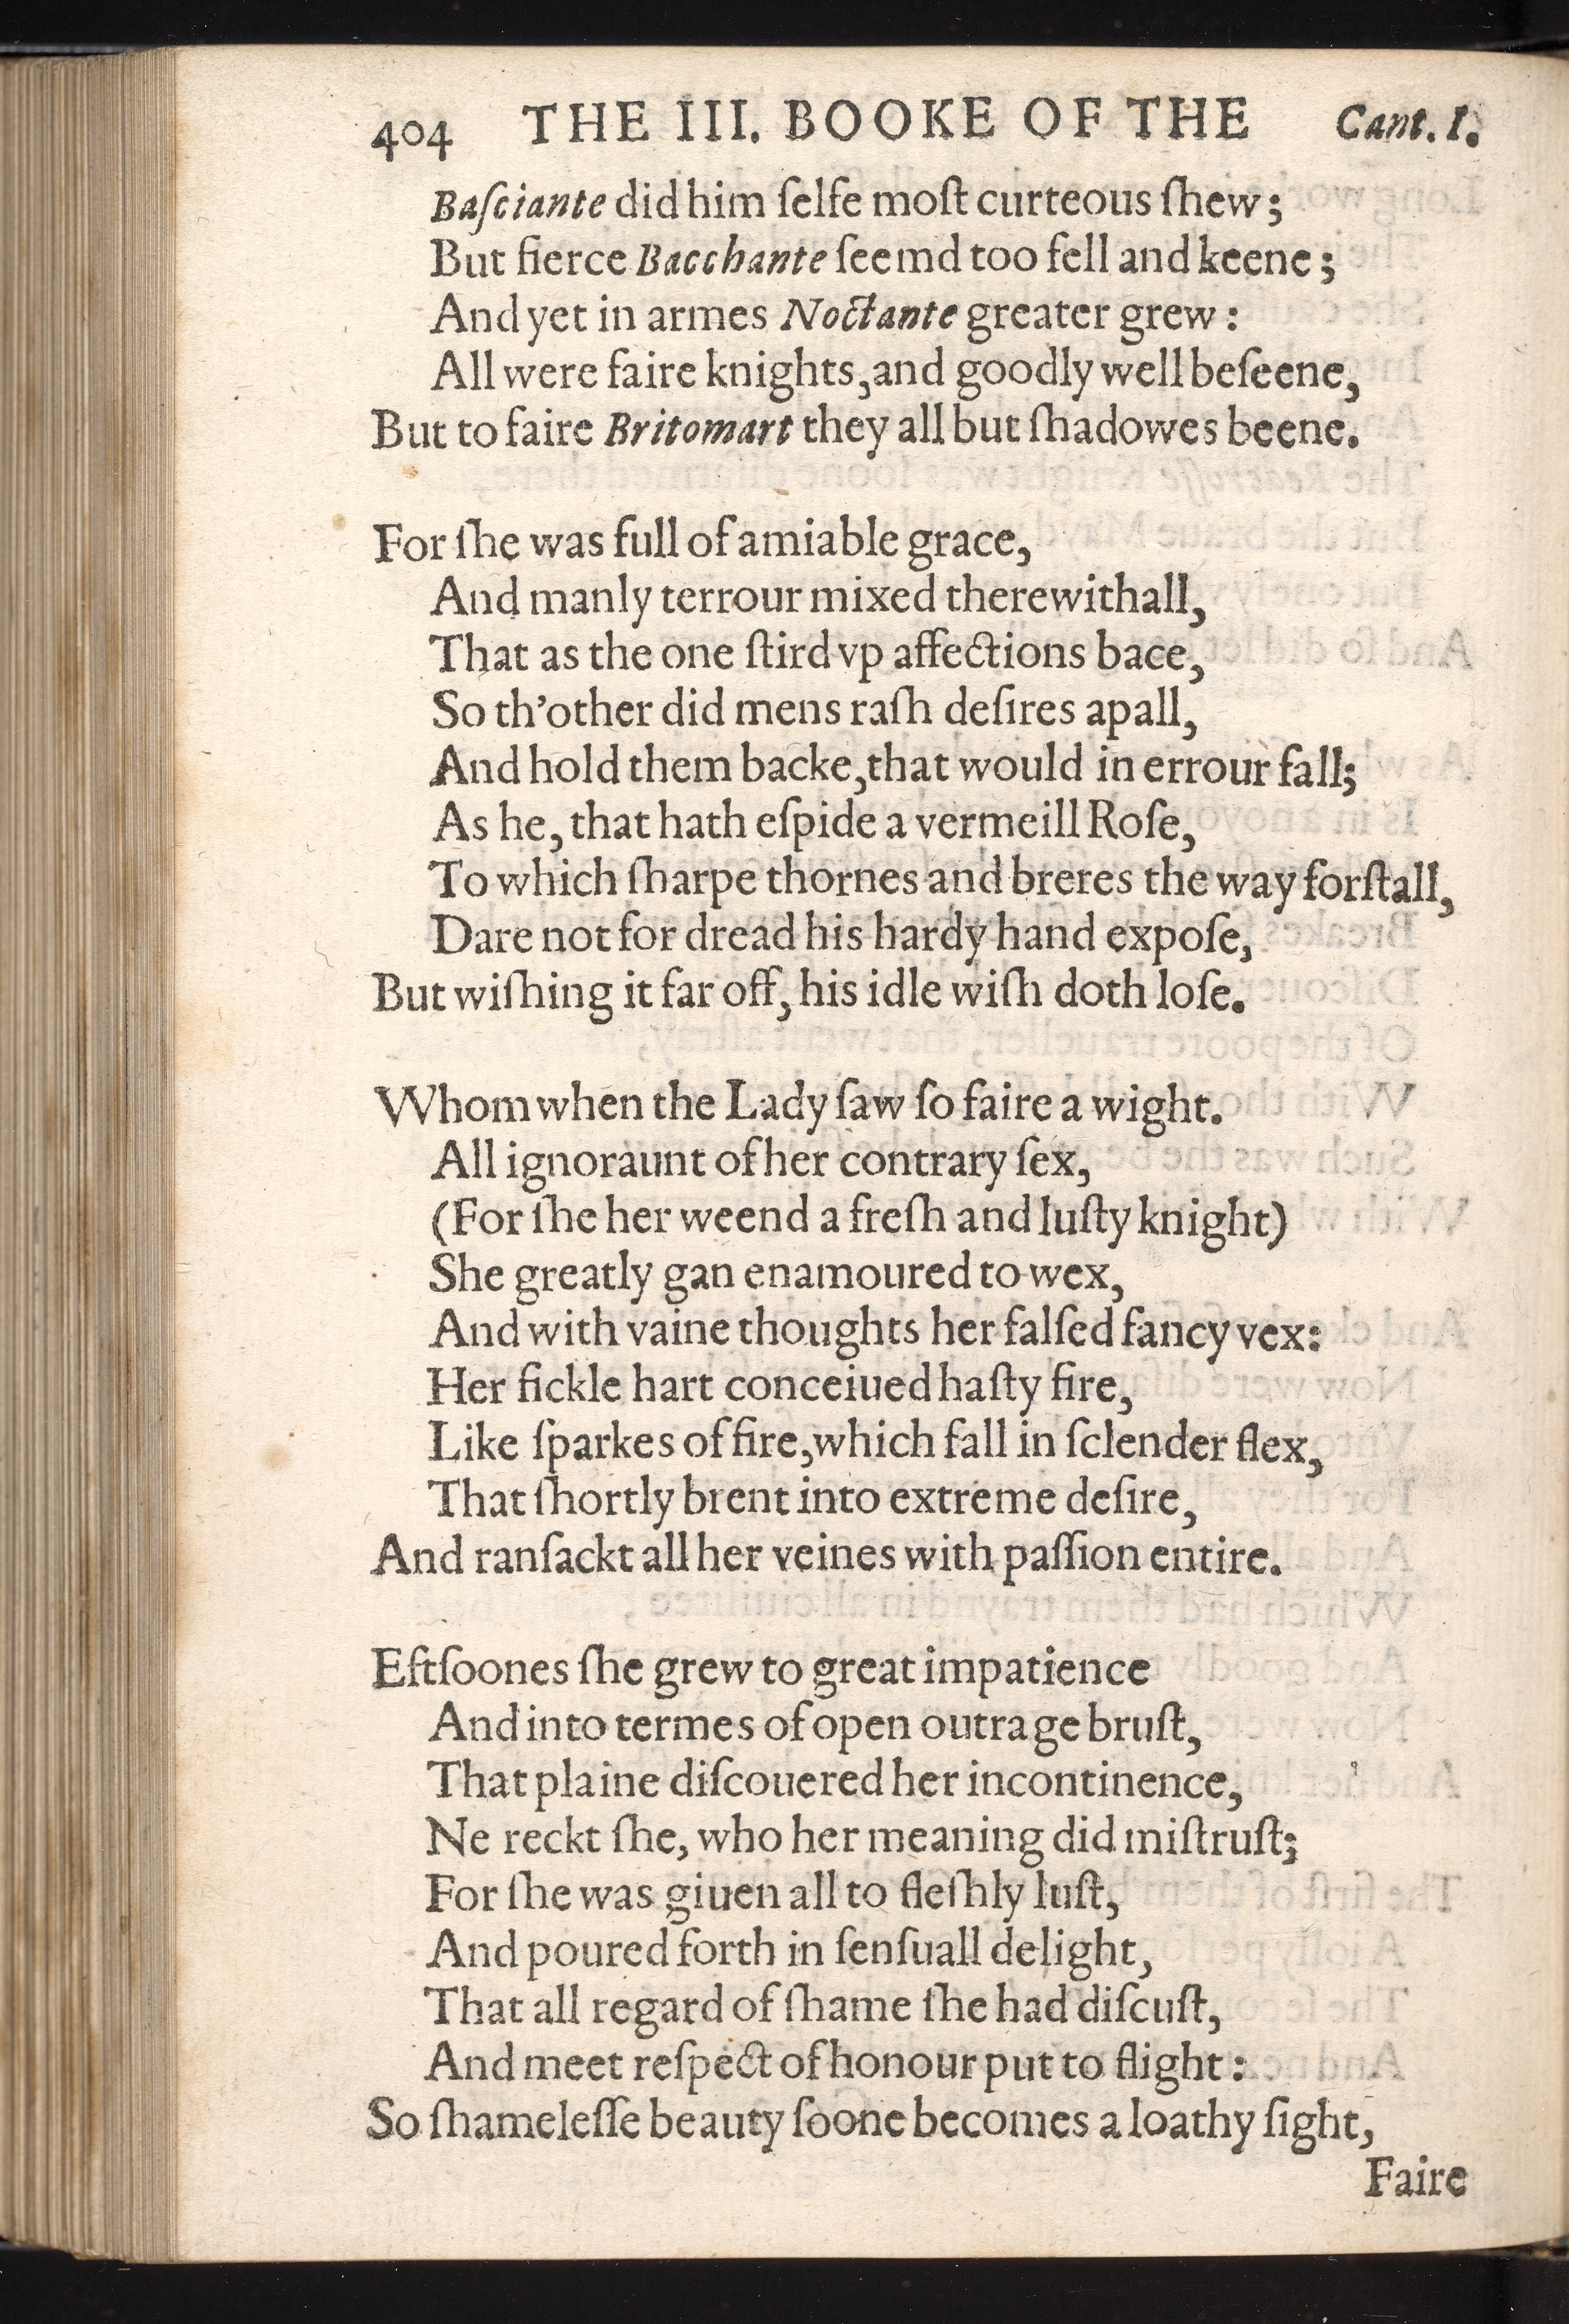 404 THE III. BOOKE OF THE Cant. I.
Baſciante did him ſelfe moſt curteous ſhew;
But fierce Bacchante ſeemd too fell and keene;
And yet in armes Noctante greater grew:
All were faire knights, and goodly well beſeene,
But to faire Britomart they all but ſhadowes beene.
For ſhe was full of amiable grace,
And manly terrour mixed therewithall,
That as the one ſtird vp affections bace,
So th'other did mens raſh deſires apall,
And hold them backe, that would in errour fall;
As he, that hath eſpide a vermeill Roſe,
To which ſharpe thornes and breres the way forſtall,
Dare not for dread his hardy hand expoſe,
But wiſhing it far off, his idle wiſh doth loſe.
Whom when the Lady ſaw ſo faire a wight.
All ignoraunt of her contrary ſex,
(For ſhe her weend a freſh and luſty knight)
She greatly gan enamoured to wex,
And with vaine thoughts her falſed fancy vex:
Her fickle hart conceiued haſty fire,
Like ſparkes of fire, which fall in ſclender flex,
That ſhortly brent into extreme deſire,
And ranſackt all her veines with paſſion entire.
Eftſoones ſhe grew to great impatience
And into termes of open outrage bruſt,
That plaine diſcouered her incontinence,
Ne reckt ſhe, who her meaning did miſtruſt;
For ſhe was giuen all to fleſhly luſt,
And poured forth in ſenſuall delight,
That all regard of ſhame ſhe had diſcuſt,
And meet reſpect of honour put to flight:
So ſhameleſſe beauty ſoone becomes a loathy ſight,
Faire